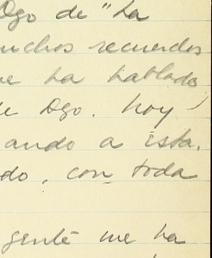 Dgo de "La
uchos recuerdos
e ha hablado
de Dgo. hoy
ando a ista.
do, con toda
gente me ha